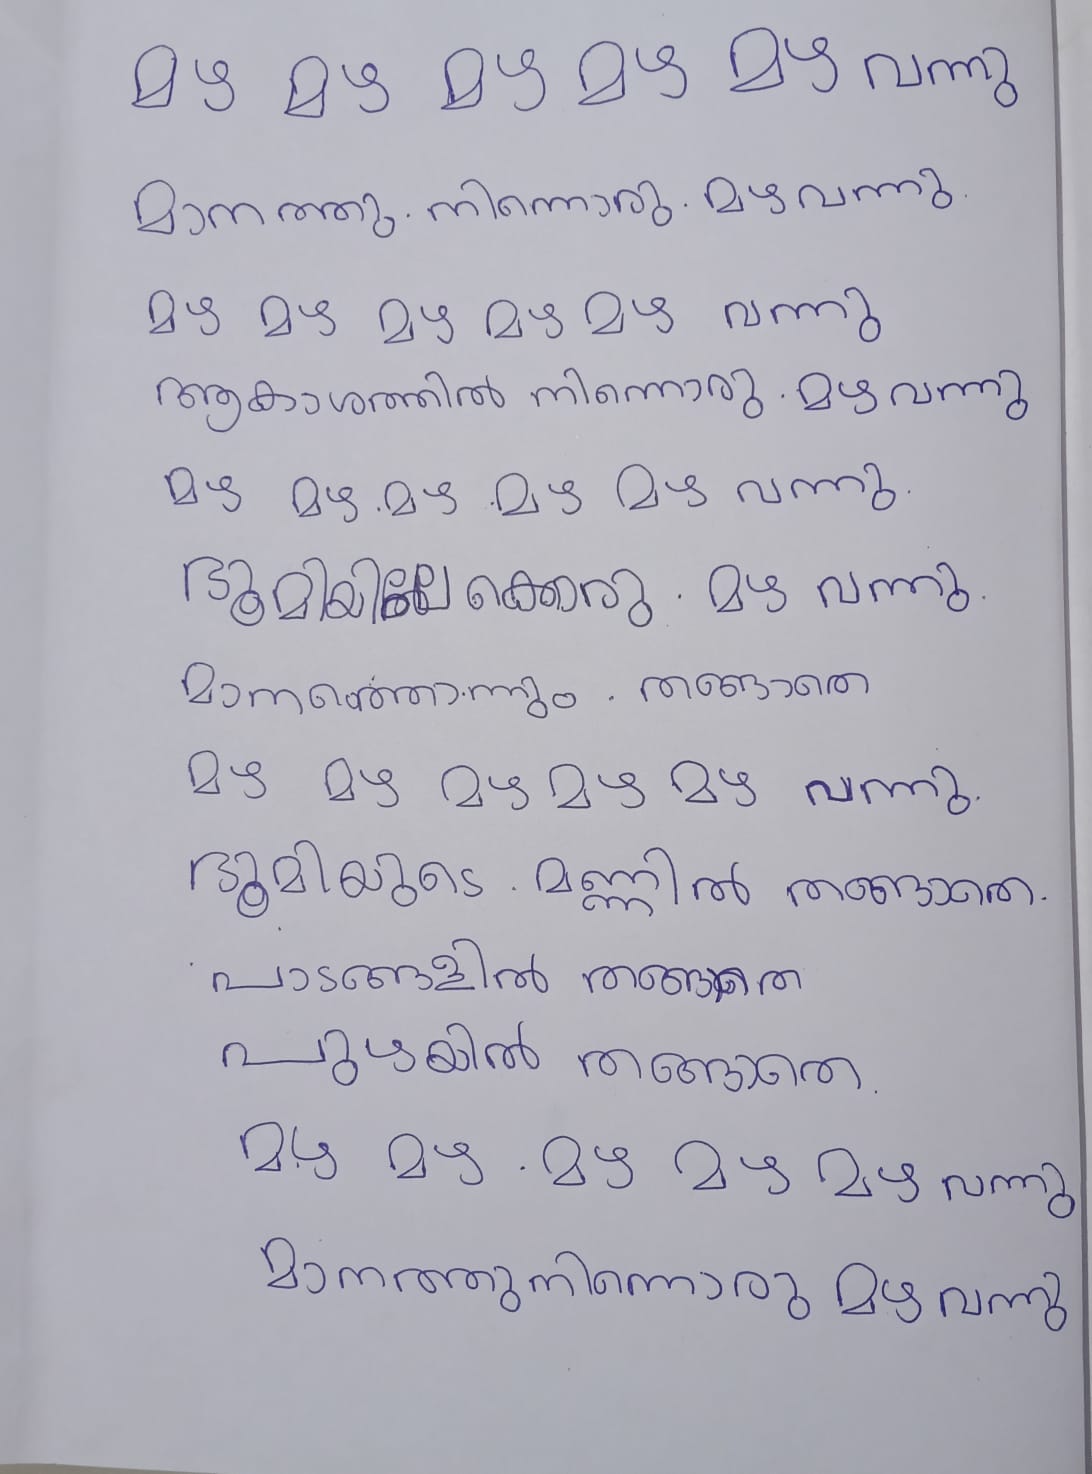 മഴ മഴ മഴ മഴ മഴ വന്നു
മാനത്തു. നിന്നൊരു. മഴവന്നു.
മഴ മഴ മഴ മഴ മഴ വന്നു
ആകാശത്തിൽ നിന്നൊരു. മഴവന്നു
മഴ മഴ.മഴ.മഴ മഴ വന്നു.
ഭൂമിയിലേക്കൊരു. മഴ വന്നു.
മാനത്തൊന്നും. തങ്ങാതെ
മഴ മഴ മഴ മഴ മഴ വന്നു.
ഭൂമിയുടെ. മണ്ണിൽ തങ്ങാതെ.
പാടങ്ങളിൽ തങ്ങാതെ
പുഴയിൽ തങ്ങാതെ.
മഴ മഴ. മഴ മഴ മഴ വന്നു
മാനത്തുനിന്നൊരു മഴ വന്നു